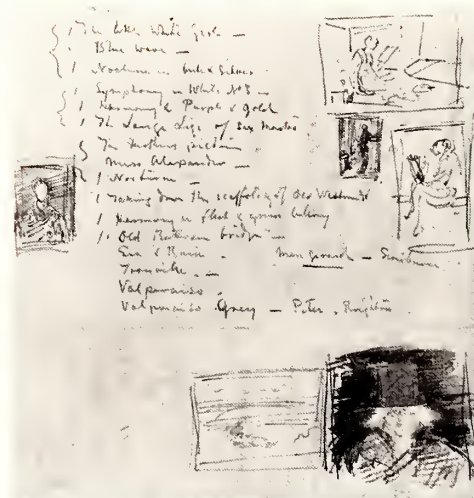 The White Girl —
Blue wave —
Nocturne in & Silver
Symphony in White No 3 —
Harmony in Purple & Gold
The Lange Lizen of Six Marks
The Mothers picture
Miss Alexander —
Nocturne —
Taking down the scaffolding of Old Westmr
Harmony in Flesh & green balcony
Old Battersea bridge —
Sea & Rain .
Trouville . —
Valparaiso .
Valparaiso Grey — Peter . Brighton